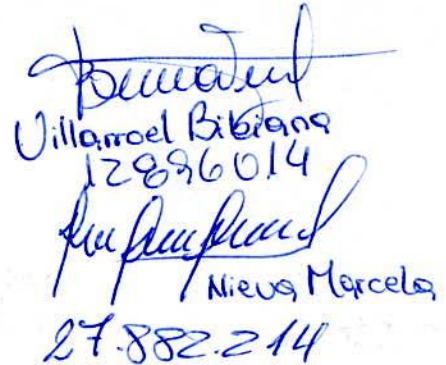 Villarroel Bibiana
12896014
Nieva Marcela
27.882.214